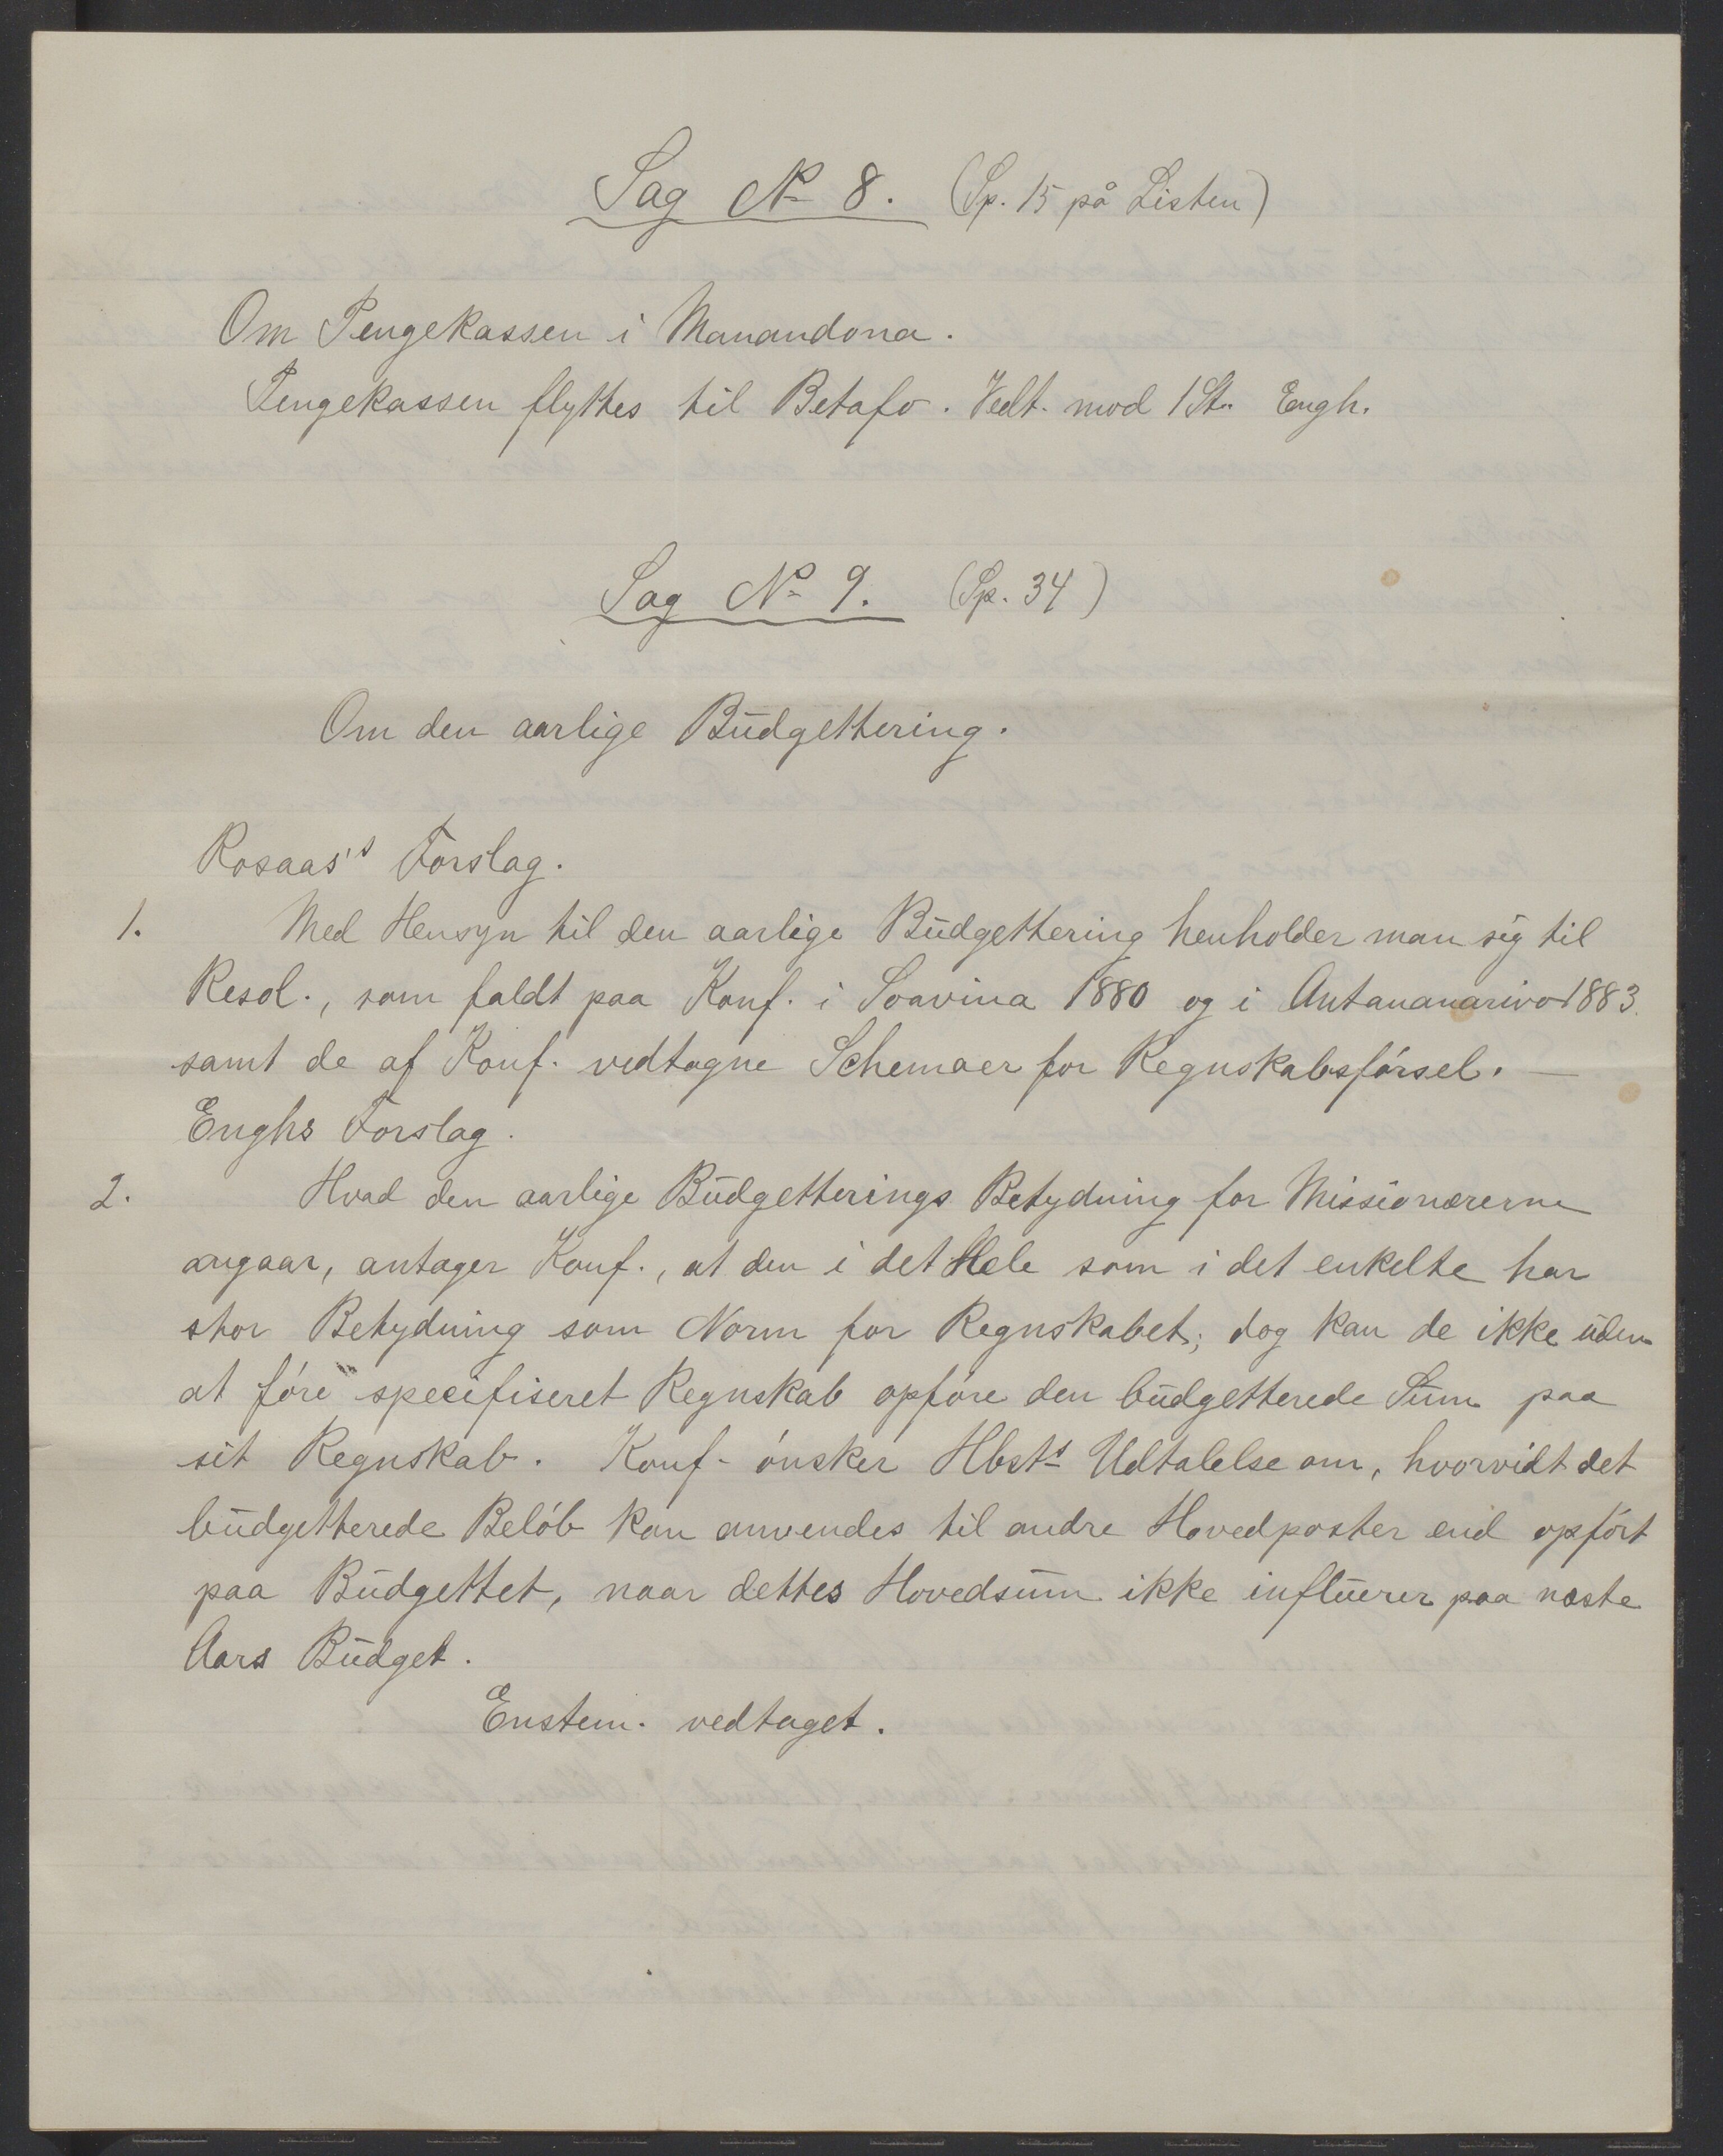 Sag No 8. (Sp. 15 på Listen)
Om Pengekassen i Manandona.
Pengekassen flyttes til Betafo. Vedt. mod 1 St. Engh.
Sag No 9. (Sp. 34)
Om den aarlige Budgettering.
Rosaas's Forslag.
1. Med Hensyn til den aarlige Budgettering henholder man sig til
Resol., som faldt paa Konf. i Soavina 1880 og i Antananarivo 1883.
samt de af Konf. vedtagne Schemaer for Regnskabsførsel. —
Enghs Forslag.
2. Hvad den aarlige Budgetterings Betydning for Missionærerne
angaar, antager Konf., at den i det Hele som i det enkelte har
stor Betydning som Norm for Regnskabet; dog kan de ikke uden
at føre specifiseret Regnskab opføre den budgetterede Sum paa
sit Regnskab. Konf. ønsker Hbsts Udtalelse om, hvorvidt det
budgetterede Beløb kan anvendes til andre Hovedposter end opført
paa Budgettet, naar dettes Hovedsum ikke influerer paa næste
Aars Budget.
Enstem. vedtaget.